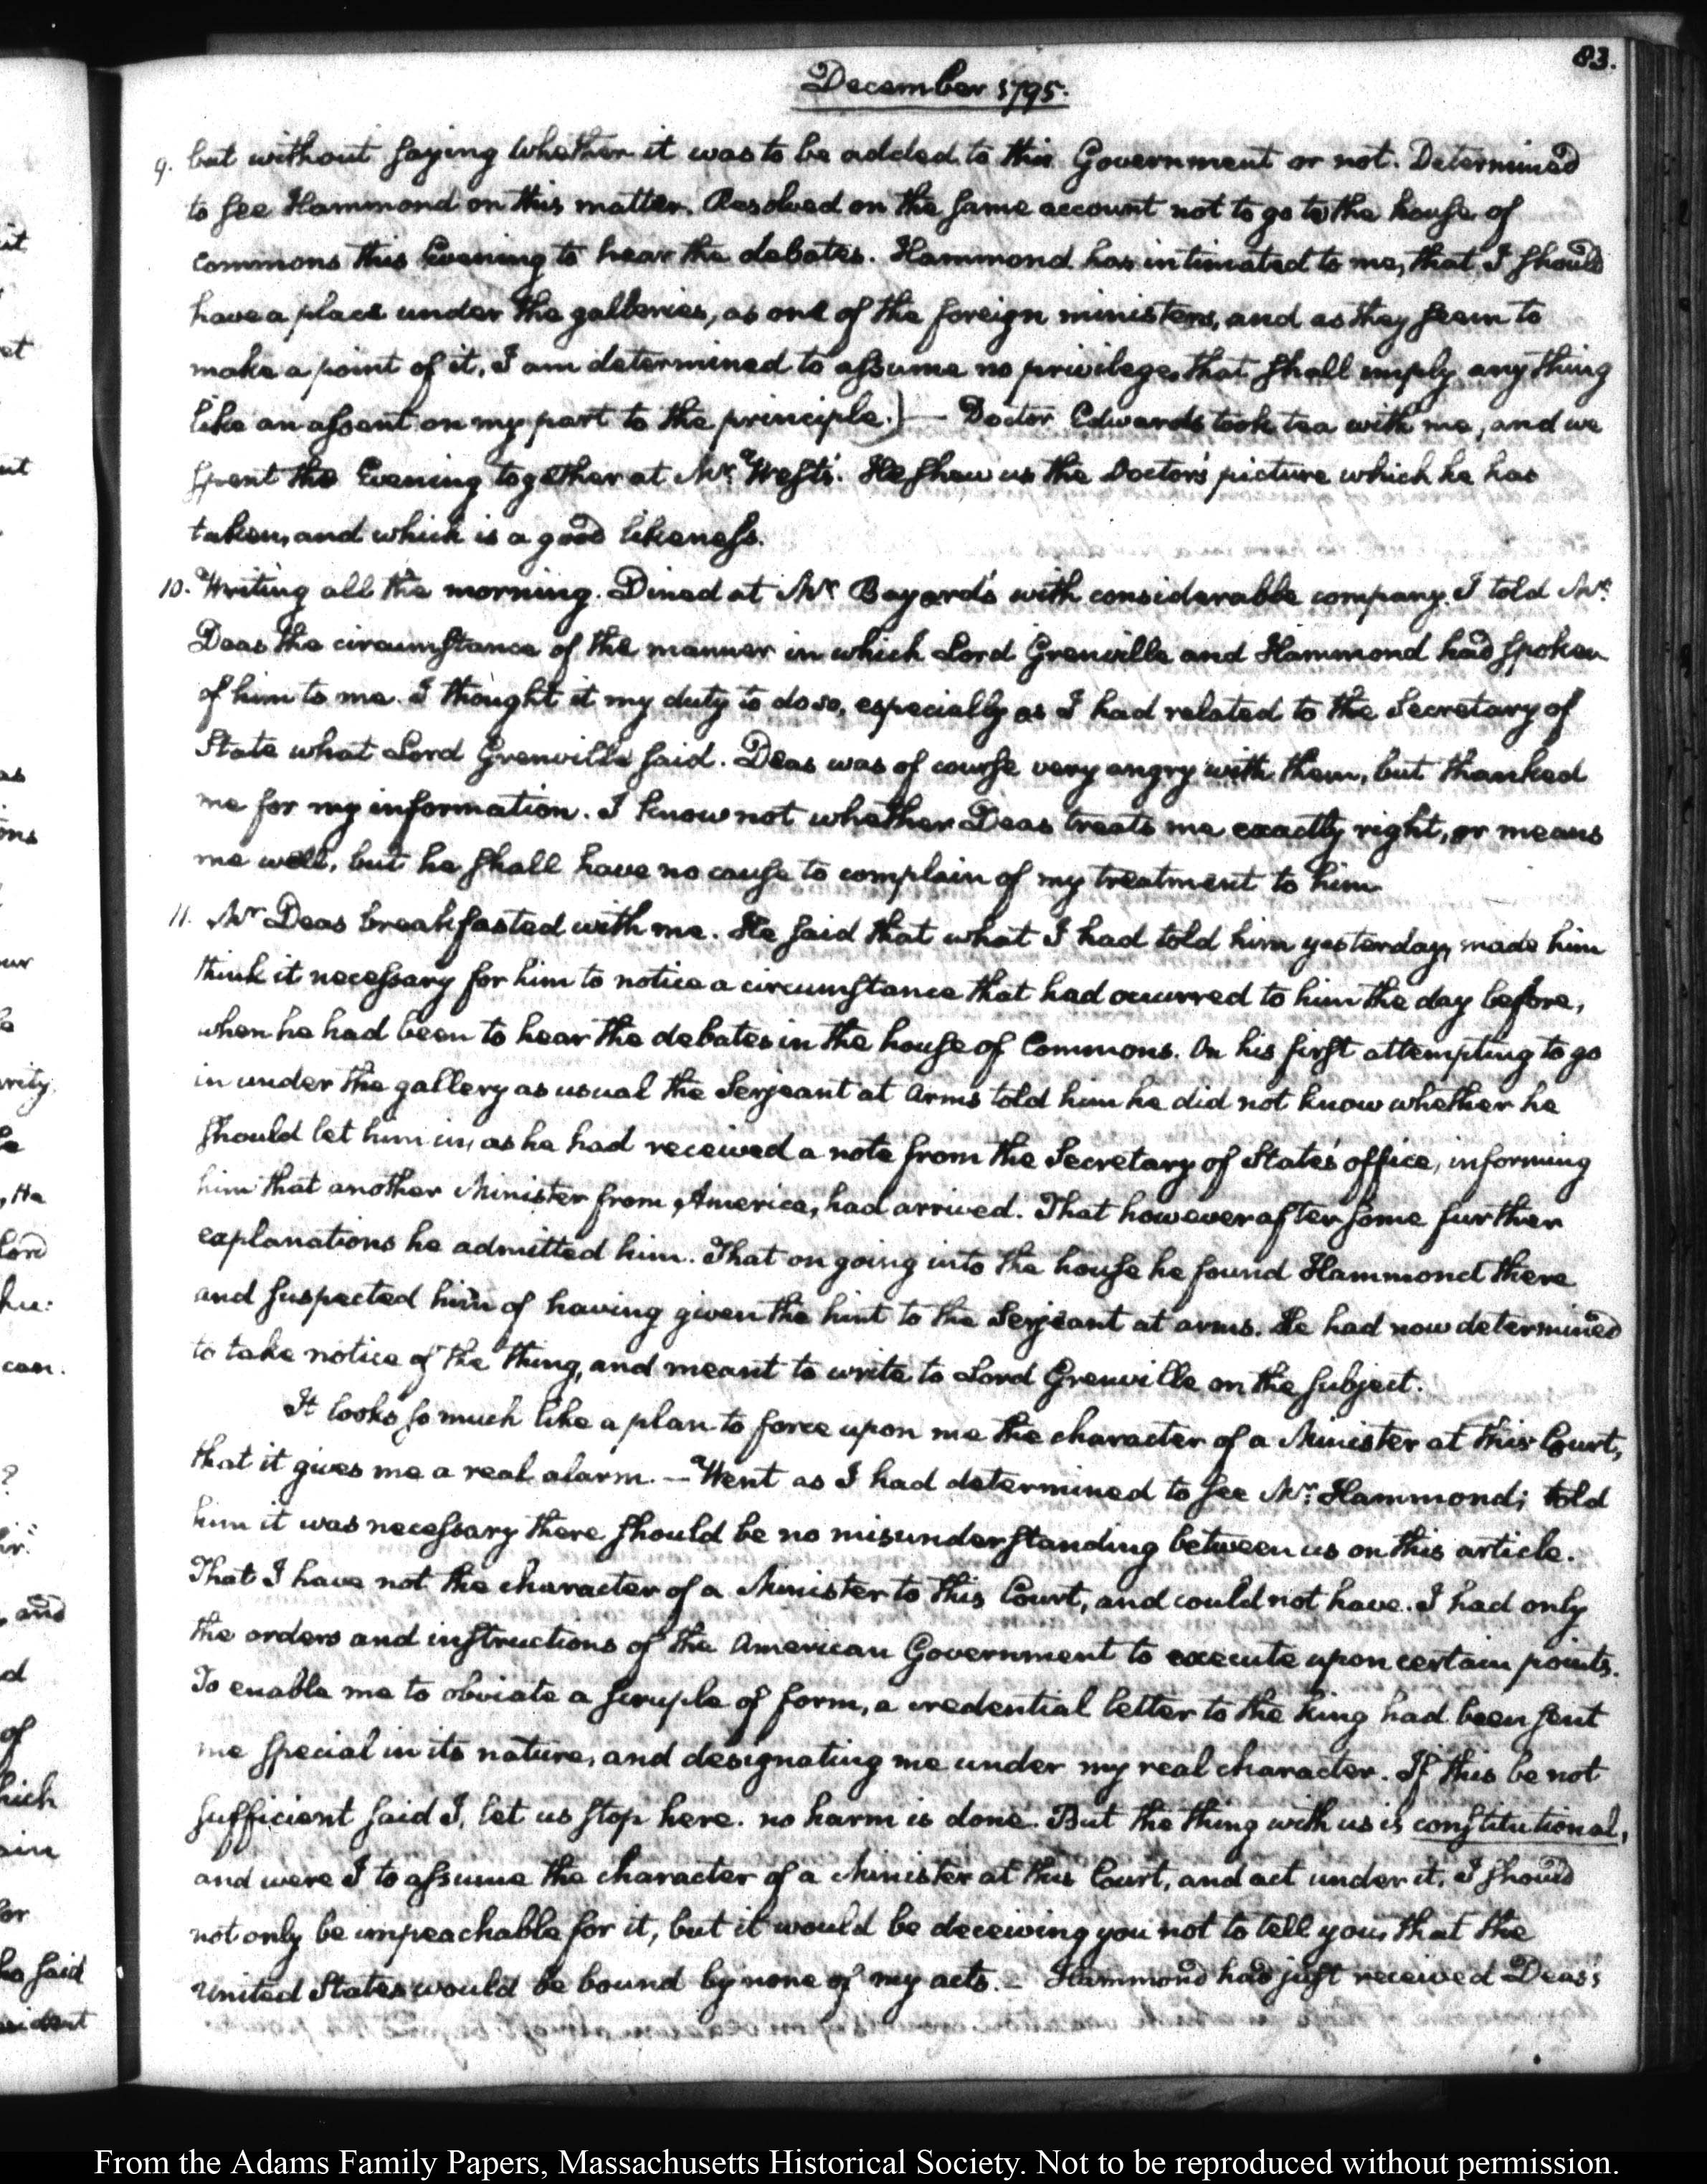 83.
December 1795.
9. but without saying whether it was to be added to this Government or not. Determined
to see Hammond on this matter. Resolved on the same account not to go to the house of
Commons this Evening to hear the debates. Hammond has intimated to me, that I should
have a place under the galleries, as one of the foreign ministers, and as they seem to
make a point of it, I am determined to assume no privilege, that shall imply any thing
like an assent on my part to the principle.) — Doctor Edwards took tea with me, and we
spent the Evening together at Mr. West's. He shew us the Doctor's picture which he has
taken, and which is a good likeness.
10. Writing all the morning. Dined at Mr. Bayard's with considerable company. I told Mr.
Deas the circumstance of the manner in which Lord Grenville and Hammond had spoken
of him to me. I thought it my duty to do so, especially as I had related to the Secretary of
State what Lord Grenville said. Deas was of course very angry with them, but thanked
me for my information. I know not whether Deas treats me exactly right, or means
me well, but he shall have no cause to complain of my treatment to him.
11. Mr Deas breakfasted with me. He said that what I had told him yesterday, made him
think it necessary for him to notice a circumstance that had occurred to him the day before,
when he had been to hear the debates in the house of Commons. On his first attempting to go
in under the gallery as usual the Serjeant at Arms told him he did not know whether he
should let him in, as he had received a note from the Secretary of State's office, informing
him that another Minister from America, had arrived. That however after some further
explanations he admitted him. That on going into the house he found Hammond there
and suspected him of having given the hint to the Serjeant at arms. He had now determined
to take notice of the thing, and meant to write to Lord Grenville on the subject.
It looks so much like a plan to force upon me the character of a Minister at this Court,
that it gives me a real alarm. — Went as I had determined to see Mr. Hammond; told
him it was necessary there should be no misunderstanding between us on this article.
That I have not the character of a Minister to this Court, and could not have. I had only
the orders and instructions of the American Government to execute upon certain points.
To enable me to obviate a scruple of form, a credential letter to the King had been sent
me special in its nature, and designating me under my real character. If this be not
sufficient said I, let us stop here. no harm is done. But the thing with us is constitutional,
and were I to assume the character of a Minister at this Court, and act under it, I should
not only be impeachable for it, but it would be deceiving you not to tell you, that the
United States would be bound by none of my acts. — Hammond had just received Deas's
From the Adams Family Papers, Massachusetts Historical Society. Not to be reproduced without permission.